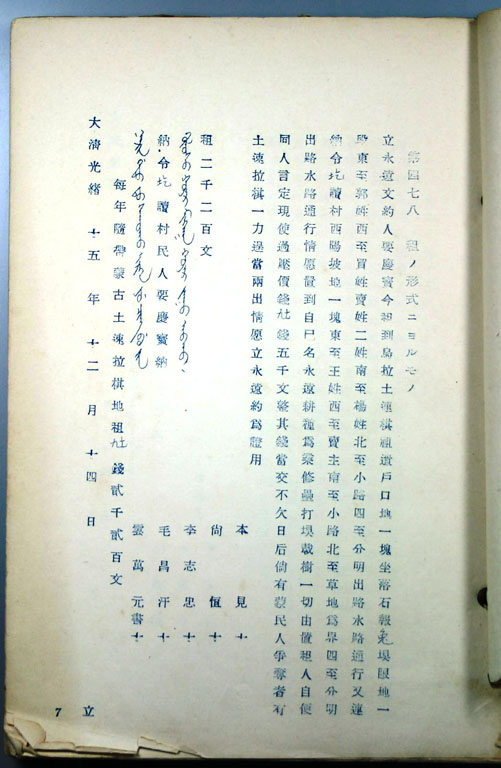 第四七八 租ノ形式ニヨルモノ
立永遠文約人要慶寳今租到烏拉土速棋祖遺戶口地一塊坐落石報 塄眼地一
段東至郭姓西至買姓賣姓二姓南至楊姓北至小路四至分明出路水路通行又連
納令圪讀村西陽坡地一塊東至王姓西至賣主南至小路北至草地爲界四至分明
出路水路通行情愿置到自巳名永遠耕種爲業修壘打埧栽樹一切由置租人自便
同人言定現使過壓價錢 錢五千文整其錢當交不欠日后倘有蒙民人爭奪者有
土速拉棋一力 當兩出情愿立永遠約爲證用
租二千二百文
納令圪讀村民人要慶寳納
每年隨帶蒙古土速拉棋地租 錢貳千貳百文
大淸光緖 十五 年 十二 月 十四 日
本 見 十
尙 恆 十
李 志 忠 十
毛 昌 汗 十
雲 萬 元 書 十
立
7